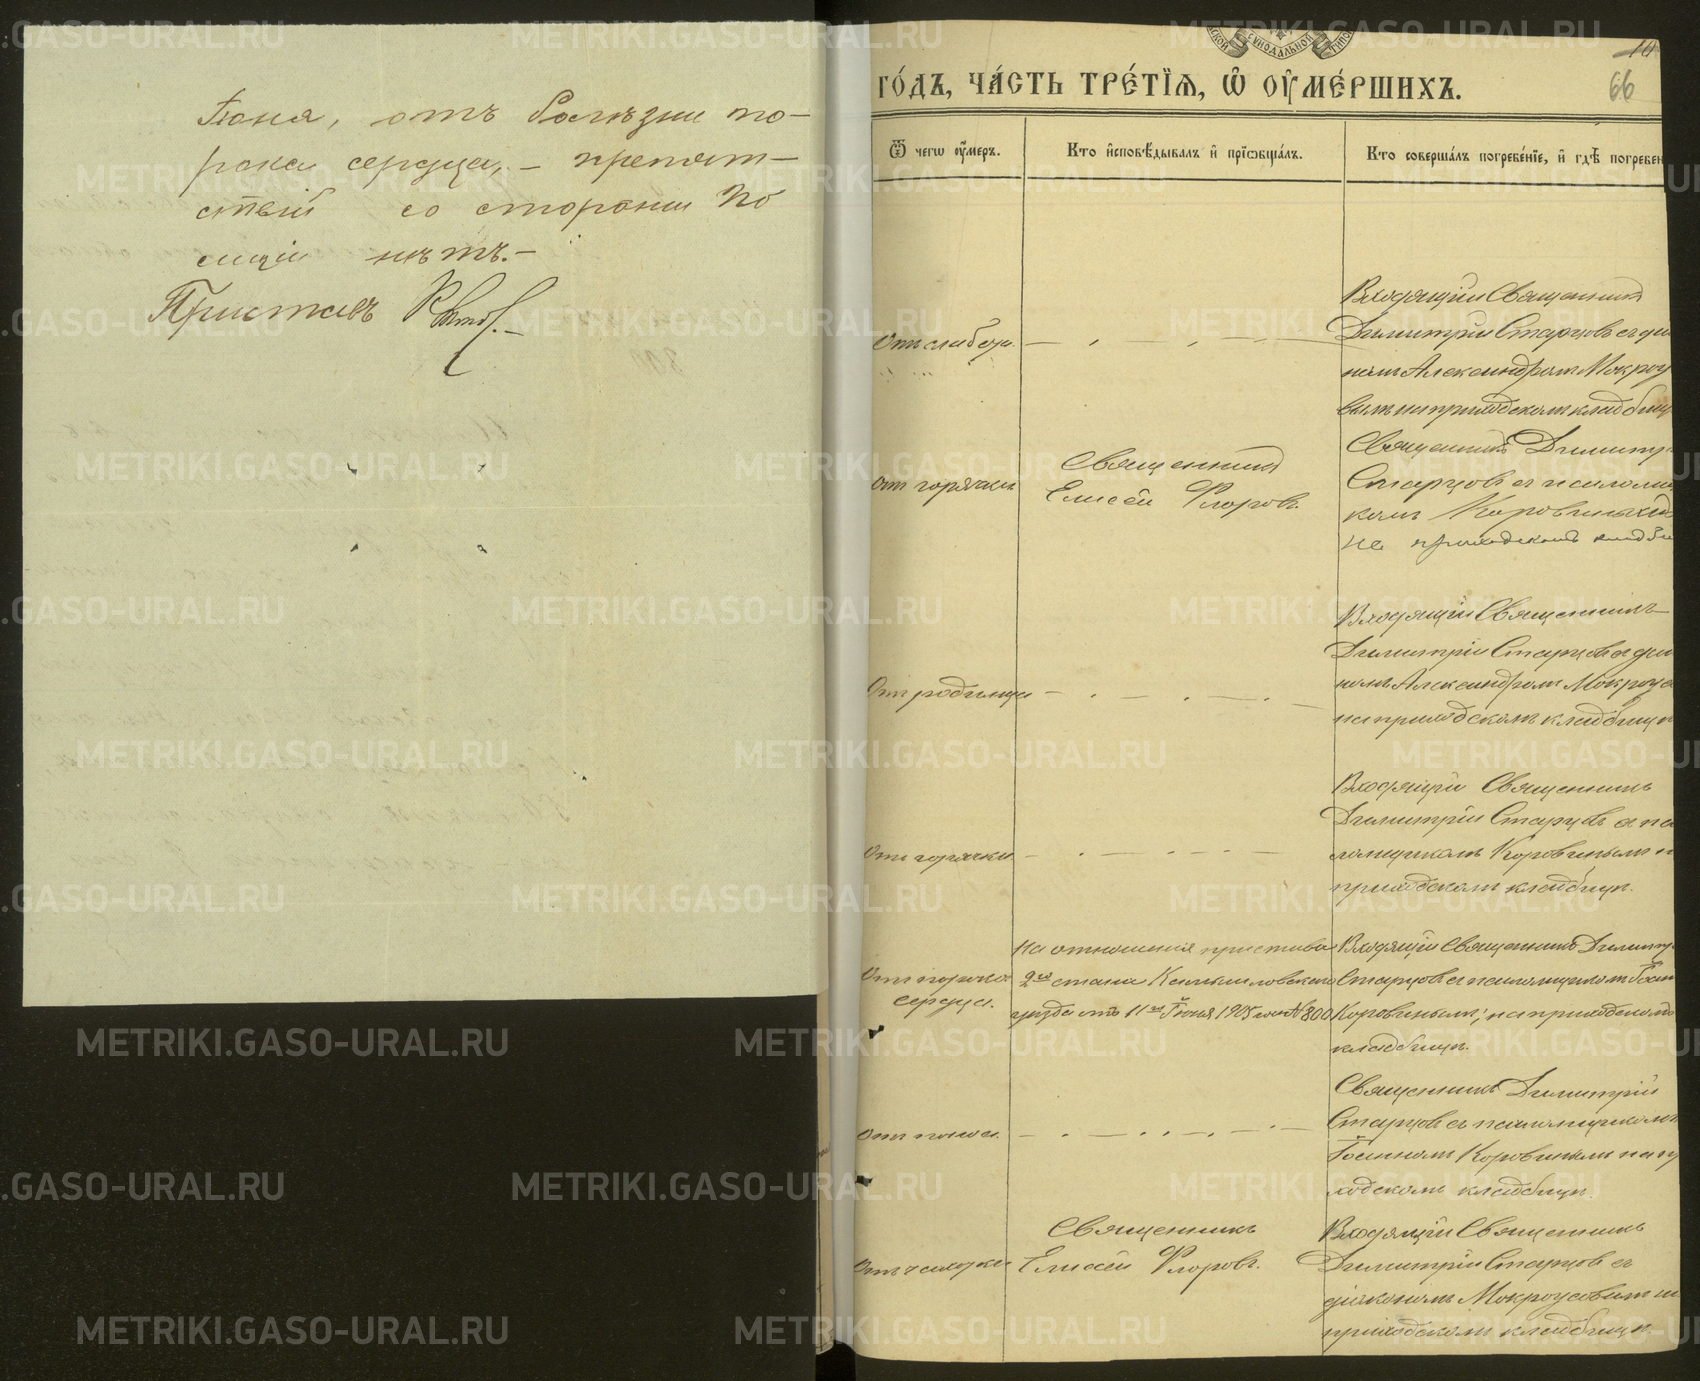 Іюня, отъ болѣзни по-
рока сердца, - препят-
ствій со стороны по
лиціи нѣтъ. -
Приставъ
66
ГО́ДЪ, ЧА́СТЬ ТРЕ́ТІѦ, Ѡ҆ ОУ҆МЕ́РШИХЪ.
Ѿ чегѡ оу҆́меръ.
Кто и҆сповѣ́дывалъ и҆ прїѡбща́лъ.
Кто соверша́лъ погребе́нїе, и҆ гдѣ̀ погребен
Отъ слабости.
Входящій Священникъ
Димитрій Старцовъ съ діа
номъ Александромъ Мокроу
вымъ на приходскомъ кладбищ
Отъ горячки
Священникъ
Елисей Флоровъ.
Священникъ Димитр
Старцовъ съ псаломщ
комъ Коровинымъ
на приходскомъ кладби
Отъ родимца
Входящій Священникъ
Димитрій Старцовъ съ діа
номъ Александромъ Мокроус
на приходскомъ кладбищѣ
Отъ горячки
Входящій Священникъ
Димитрій Старцовъ съ пса
ломщикомъ Коровинымъ н
приходскомъ кладбищѣ.
Отъ порока
сердца.
На отношенія пристава
2го стана Камышловскаго
уѣзда отъ 11го Іюня 1905 года № 800
Входящій Священникъ Димитр
Старцовъ съ псаломщикомъ Іоан
Коровинымъ, на приходскомъ
кладбищѣ.
Отъ поноса.
Священникъ Димитрій
Старцовъ съ псаломщикомъ
Іоанномъ Коровинымъ на пр
ходскомъ кладбищѣ.
Отъ чахотки
Священникъ
Елисей Флоровъ.
Входящій Священникъ
Димитрій Старцовъ съ
діакономъ Мокроусовымъ н
приходскомъ кладбищѣ
METRIKI.GASO-URAL.RU